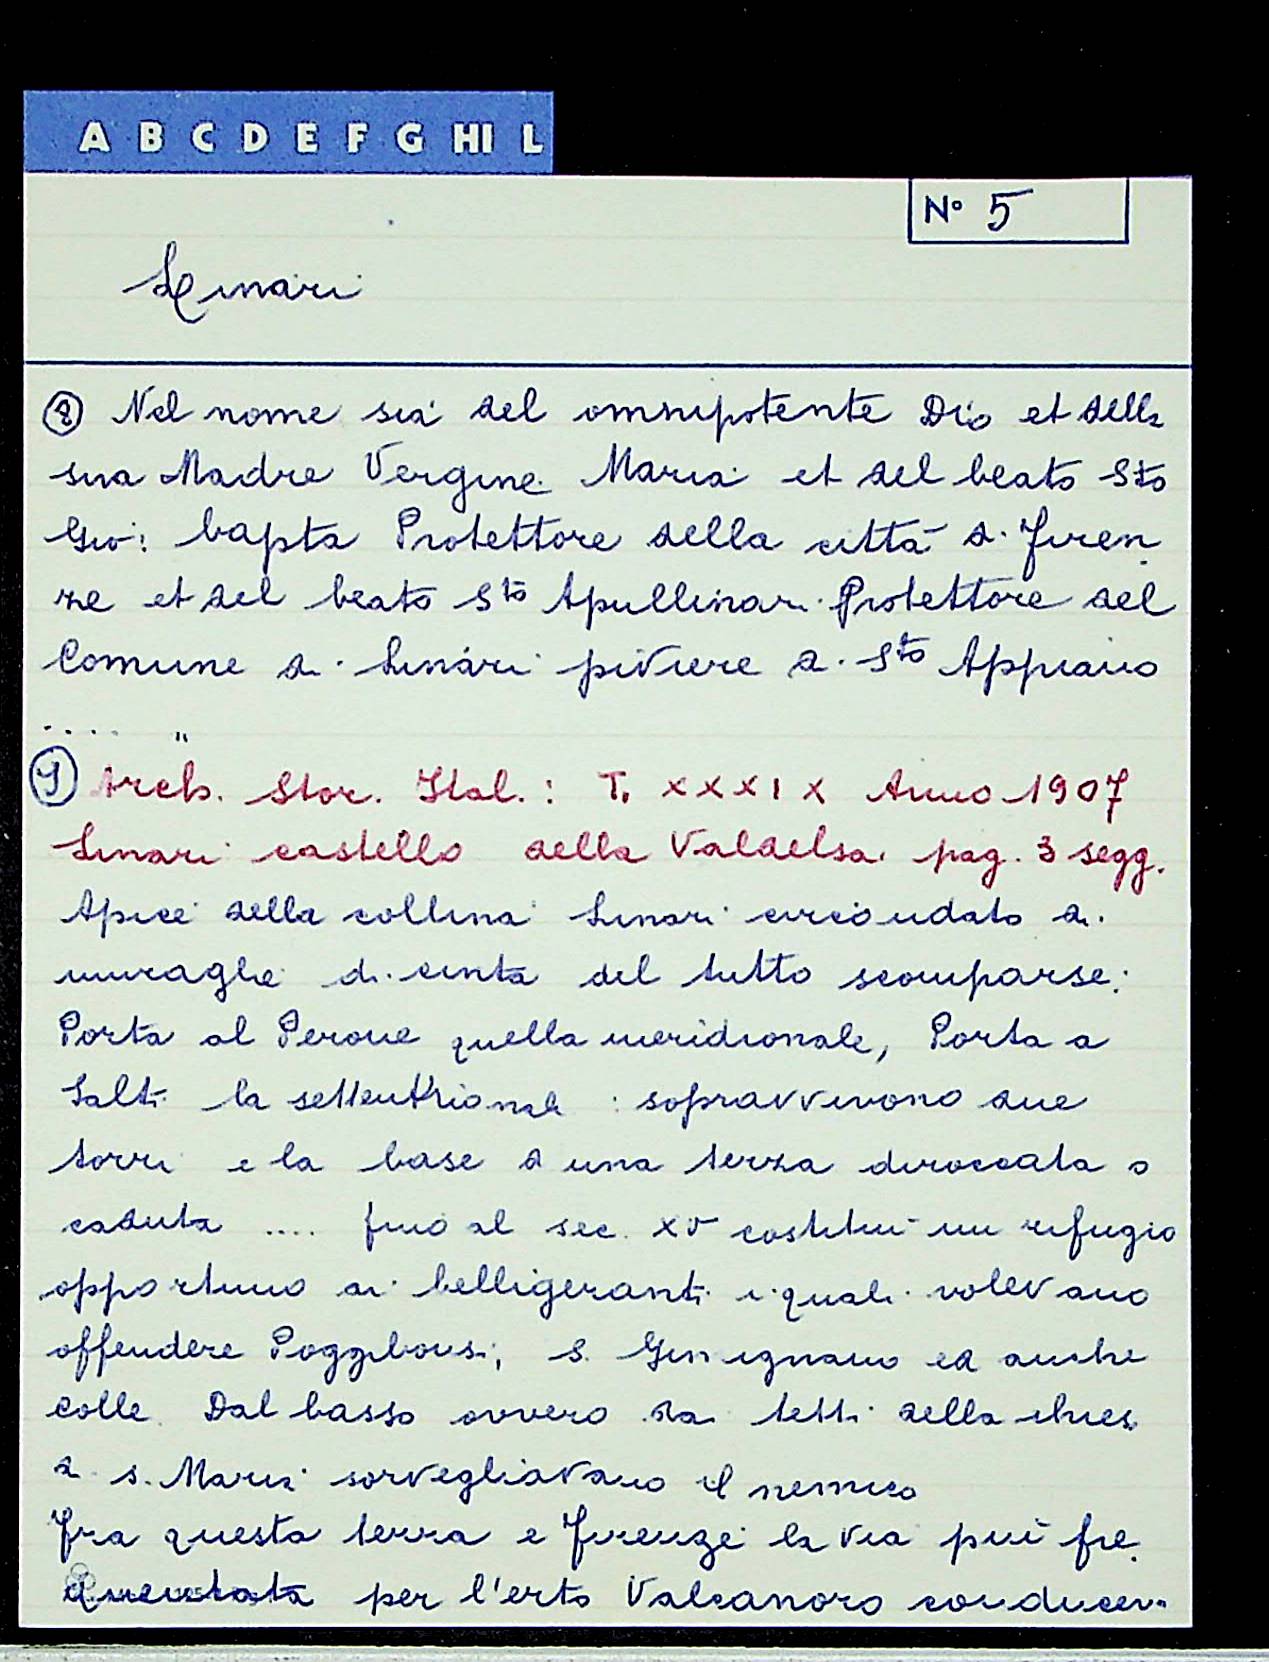 A B C D E F G HI L
N° 5
Linari
② Nel nome sia del omnipotente Dio et della
sua Madre Vergine Maria et del beato Sto
Gio: bapta Protettore della città di Firen
ze et del beato Sto Apullinari Protettore del
Comune di Linari piviere di Sto Appiano
.... "
Arch. Stor. Ital.: T. XXXIX Anno 1907
Linari castello della Valdelsa pag. 3 segg.
Apice della collina Linari circondato di
muraglie di cinta del tutto scomparse:
Porta al Perone quella meridionale, Porta a
Salti la settentrionale : sopravvivono due
torri e la base d una terza diroccata o
caduta .... fino al sec. XV costitui un rifugio
opportuno ai belligeranti i quali volevano
offendere Poggibonsi, S. Gimignano ed anche
Colle. Dal basso ovvero dai tetti della chiesa
di S. Maria sorvegliavano il nemico
Fra questa terra e Firenze la via più fre
quentata per l'erto Valcanoro conducev